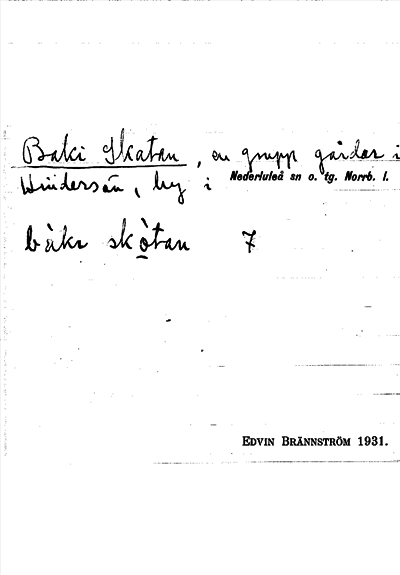 Baki Skatan, en grupp gårdar i
Unnders­ån, by i Nederluleå sn o. tg. Norrb. l.
bàkι skòtan 7
EDVIN BRÄNNSTRÖM 1931.